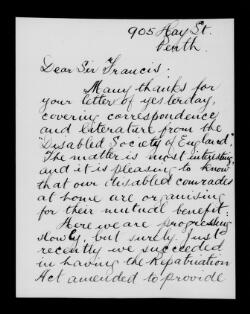 905 Hay St.
Perth.
Dear Sir Francis:
Many thanks for
your letter of yesterday,
covering correspondence
and literature from the
"Disabled Society of England".
The matter is most interesting,
and it is pleasing to know
that our disabled comrades
at home are organising
for their mutual benefit.
Here we are progressing
slowly, but surely. Just
recently we succeeded
in having the Repatriation
Act amended to provide